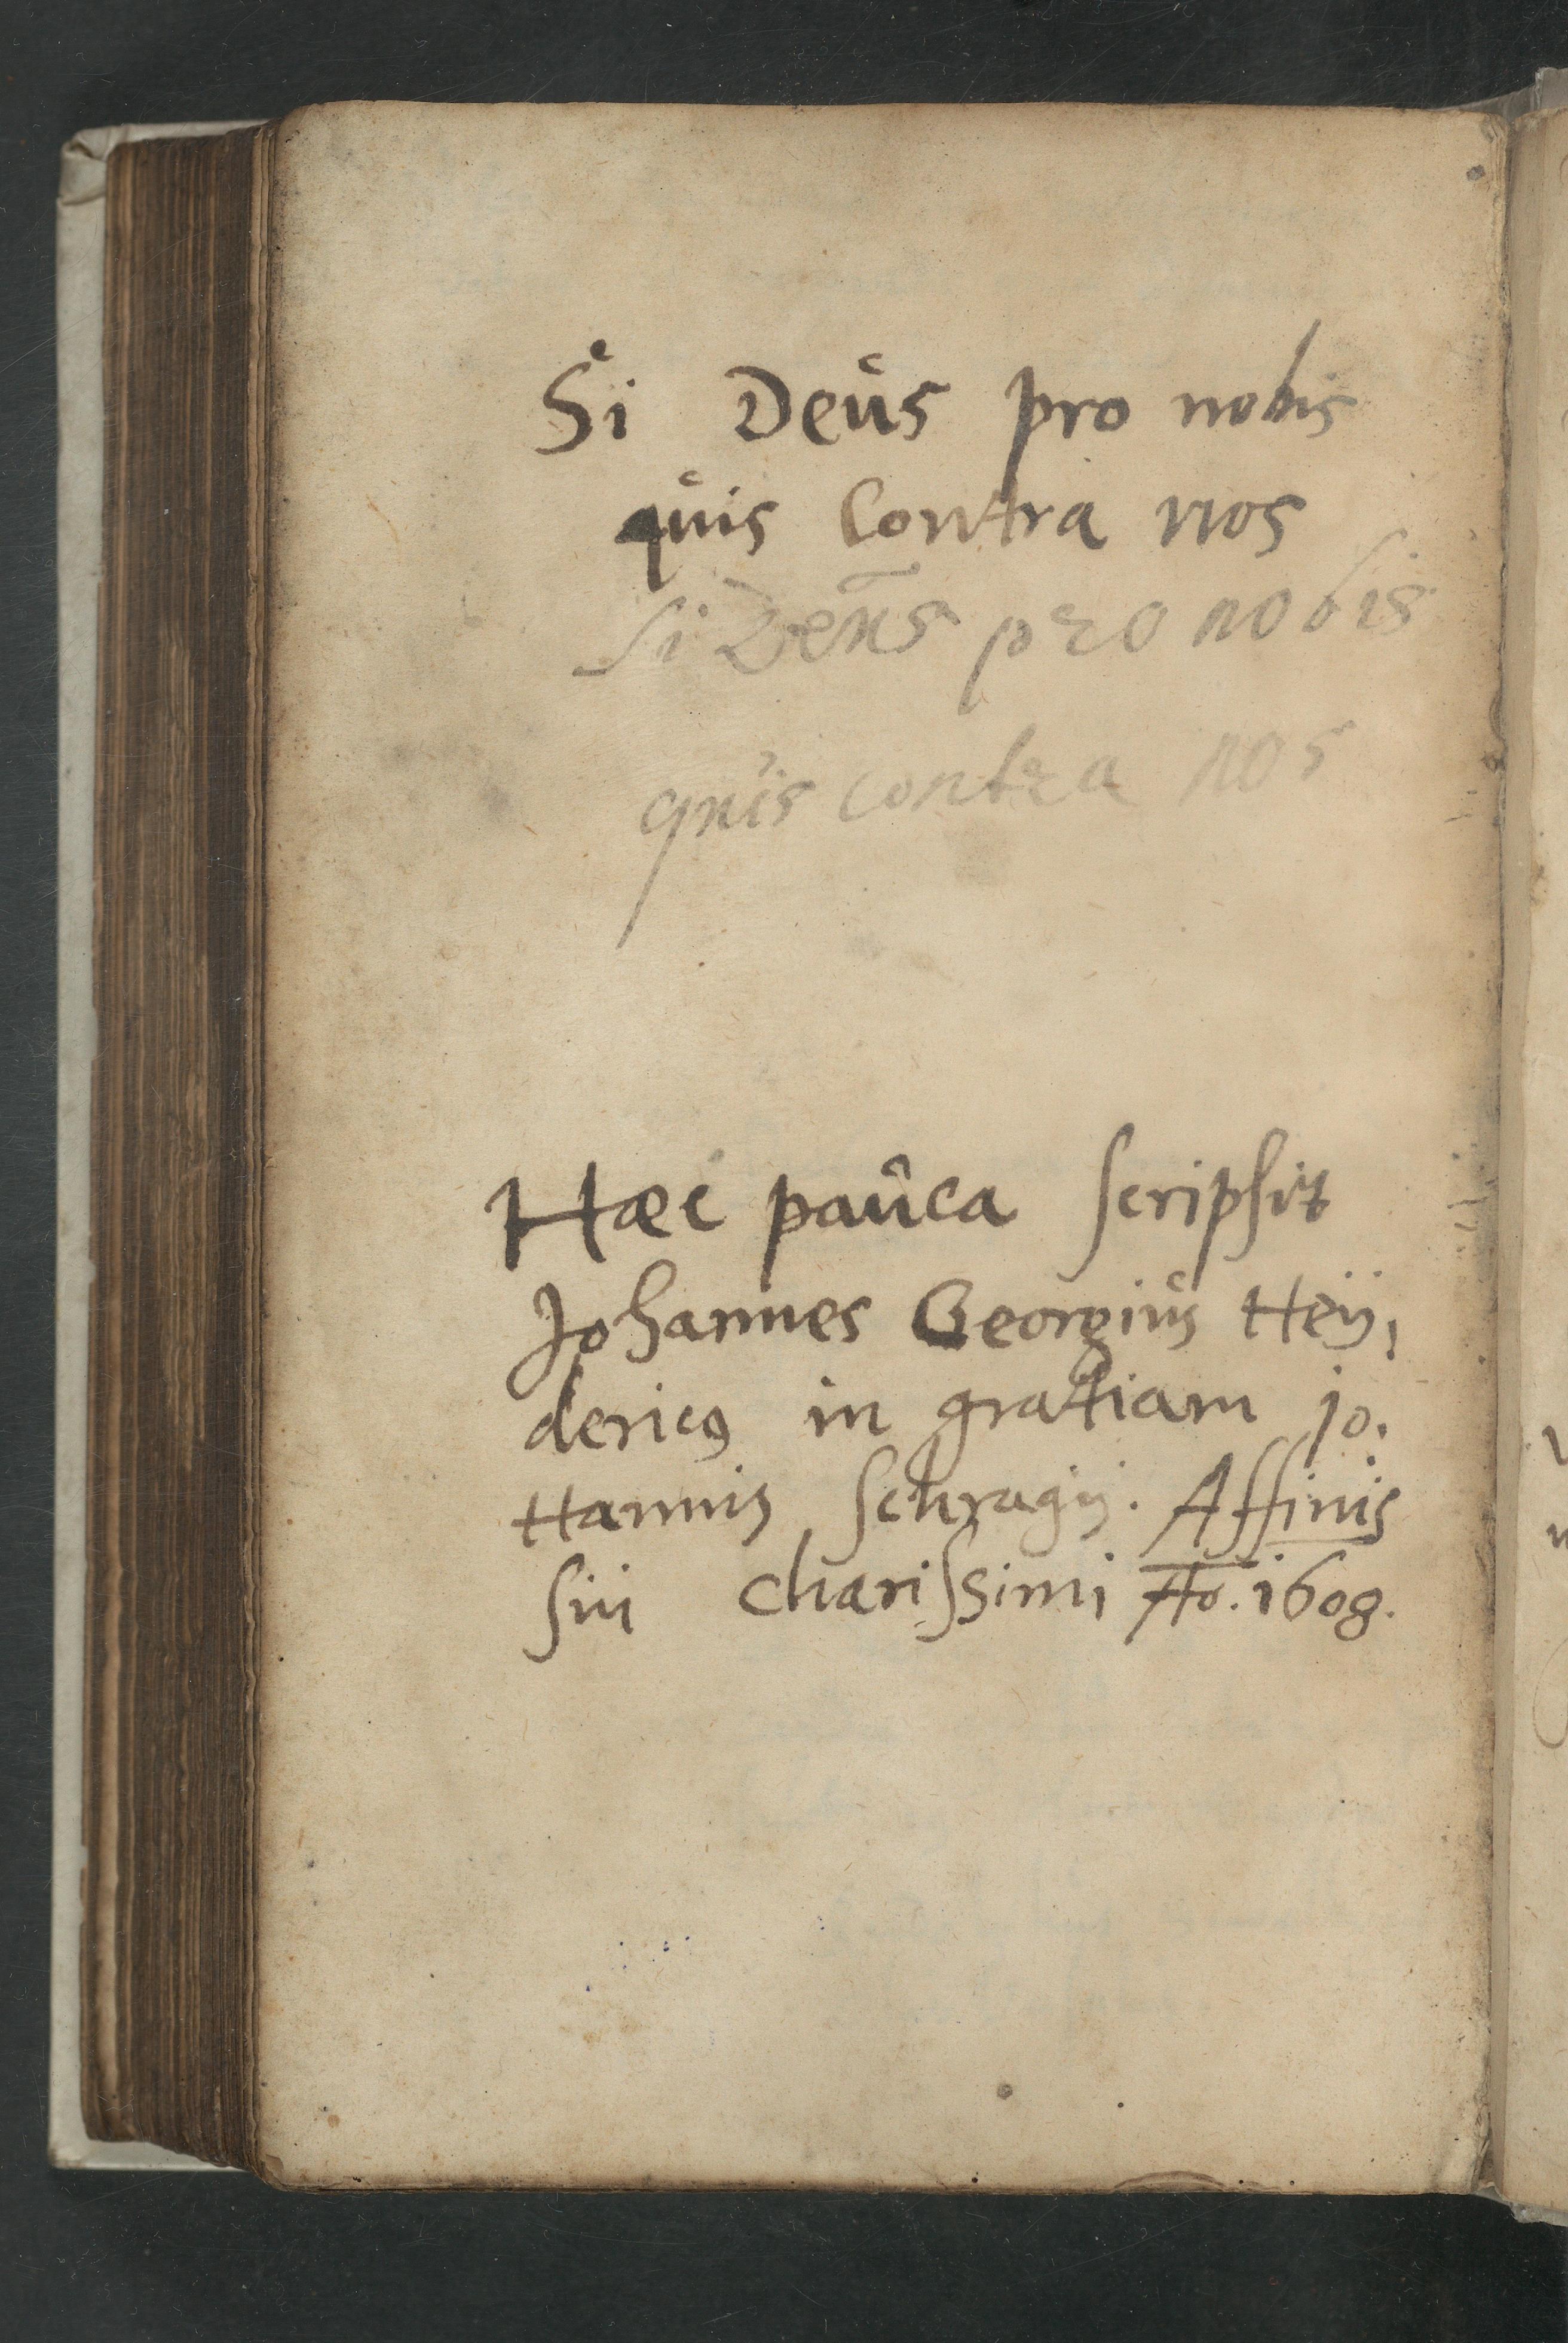 Si Deůs pro nobis
qůis Contra nos
Si Deus pro nobis
quis contra nos
Hæc paůca ſcripſit
Johannes Georgiůs Heÿ,
dericꝰ in gratiam jo,
Hannis Schragij. Affinis
ſui chariſſimi Ao. 1608.